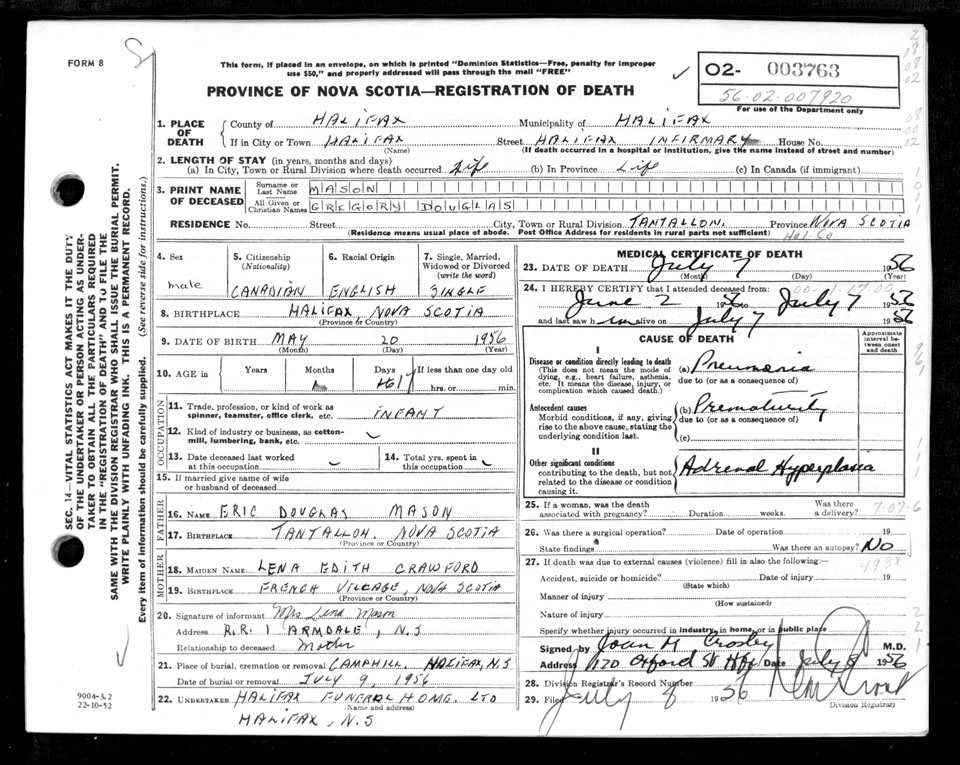 FORM 8
This form, if placed in an envelope, on which is printed "Dominion Statistics—Free, penalty for improper
use $50," and properly addressed will pass through the mail "FREE"
PROVINCE OF NOVA SCOTIA—REGISTRATION OF DEATH
02- 003763
56-02-007920
For use of the Department only
1. PLACE OF DEATH
County of HALIFAX Municipality of HALIFAX
If in City or Town HALIFAX Street HALIFAX INFIRMARY House No.
(Name) (If death occurred in a hospital or institution, give the name instead of street and number)
2. LENGTH OF STAY (in years, months and days)
(a) In City, Town or Rural Division where death occurred Life (b) In Province Life (c) In Canada (if immigrant)
3. PRINT NAME OF DECEASED
Surname or Last Name MASON
All Given or Christian Names GREGORY DOUGLAS
RESIDENCE No. Street City, Town or Rural Division TANTALLON. Province NOVA SCOTIA
(Residence means usual place of abode. Post Office Address for residents in rural parts not sufficient) Hal. Co
4. Sex male
5. Citizenship (Nationality) CANADIAN
6. Racial Origin ENGLISH
7. Single, Married, Widowed or Divorced (write the word) SINGLE
8. BIRTHPLACE HALIFAX, NOVA SCOTIA
(Province or Country)
9. DATE OF BIRTH MAY 20 1956
(Month) (Day) (Year)
10. AGE in Years Months Days If less than one day
hrs. or min.
OCCUPATION
11. Trade, profession, or kind of work as spinner, teamster, office clerk, etc. INFANT
12. Kind of industry or business, as cotton-mill, lumbering, bank, etc.
13. Date deceased last worked at this occupation
14. Total yrs. spent in this occupation
15. If married give name of wife or husband of deceased
FATHER
16. NAME ERIC DOUGLAS MASON
17. BIRTHPLACE TANTALLON, NOVA SCOTIA
(Province or Country)
MOTHER
18. MAIDEN NAME LENA EDITH CRAWFORD
19. BIRTHPLACE FRENCH VILLAGE, NOVA SCOTIA
(Province or Country)
20. Signature of informant Mrs Lena Mason
Address R.R. 1 ARMDALE, N.S
Relationship to deceased Mother
21. Place of burial, cremation or removal CAMPHILL. HALIFAX, N.S
Date of burial or removal JULY 9, 1956
22. UNDERTAKER HALIFAX FUNERAL HOME. LTD
(Name and address)
HALIFAX, N.S
MEDICAL CERTIFICATE OF DEATH
23. DATE OF DEATH July 7 1956
(Month) (Day) (Year)
24. I HEREBY CERTIFY that I attended deceased from:
June 2 1956 to July 7 1956
and last saw him alive on July 7 1956
CAUSE OF DEATH
Approximate interval between onset and death
I
Disease or condition directly leading to death
(This does not mean the mode of dying, e.g., heart failure, asthenia, etc. It means the disease, injury, or complication which caused death.)
(a) Pneumonia
due to (or as a consequence of)
Antecedent causes
Morbid conditions, if any, giving rise to the above cause, stating the underlying condition last.
(b) Prematurity
due to (or as a consequence of)
(c)
II
Other significant conditions
contributing to the death, but not related to the disease or condition causing it.
Adrenal Hyperplasia
25. If a woman, was the death associated with pregnancy? Duration weeks. Was there a delivery?
26. Was there a surgical operation? Date of operation 19
State findings Was there an autopsy? No
27. If death was due to external causes (violence) fill in also the following:—
Accident, suicide or homicide? Date of injury 19
(State which)
Manner of injury
(How sustained)
Nature of injury
Specify whether injury occurred in industry, in home, or in public place
Signed by Joan M Crosby M.D.
Address 170 Oxford St Hfx Date July 9 1956
28. Division Registrar's Record Number
29. Filed July 8 1956
Division Registrar
SEC. 14—VITAL STATISTICS ACT MAKES IT THE DUTY
OF THE UNDERTAKER OR PERSON ACTING AS UNDER-
TAKER TO OBTAIN ALL THE PARTICULARS REQUIRED
IN THE "REGISTRATION OF DEATH" AND TO FILE THE
SAME WITH THE DIVISION REGISTRAR WHO SHALL ISSUE THE BURIAL PERMIT.
WRITE PLAINLY WITH UNFADING INK. THIS IS A PERMANENT RECORD.
Every item of information should be carefully supplied. (See reverse side for instructions.)
9004-3.2
22-10-52